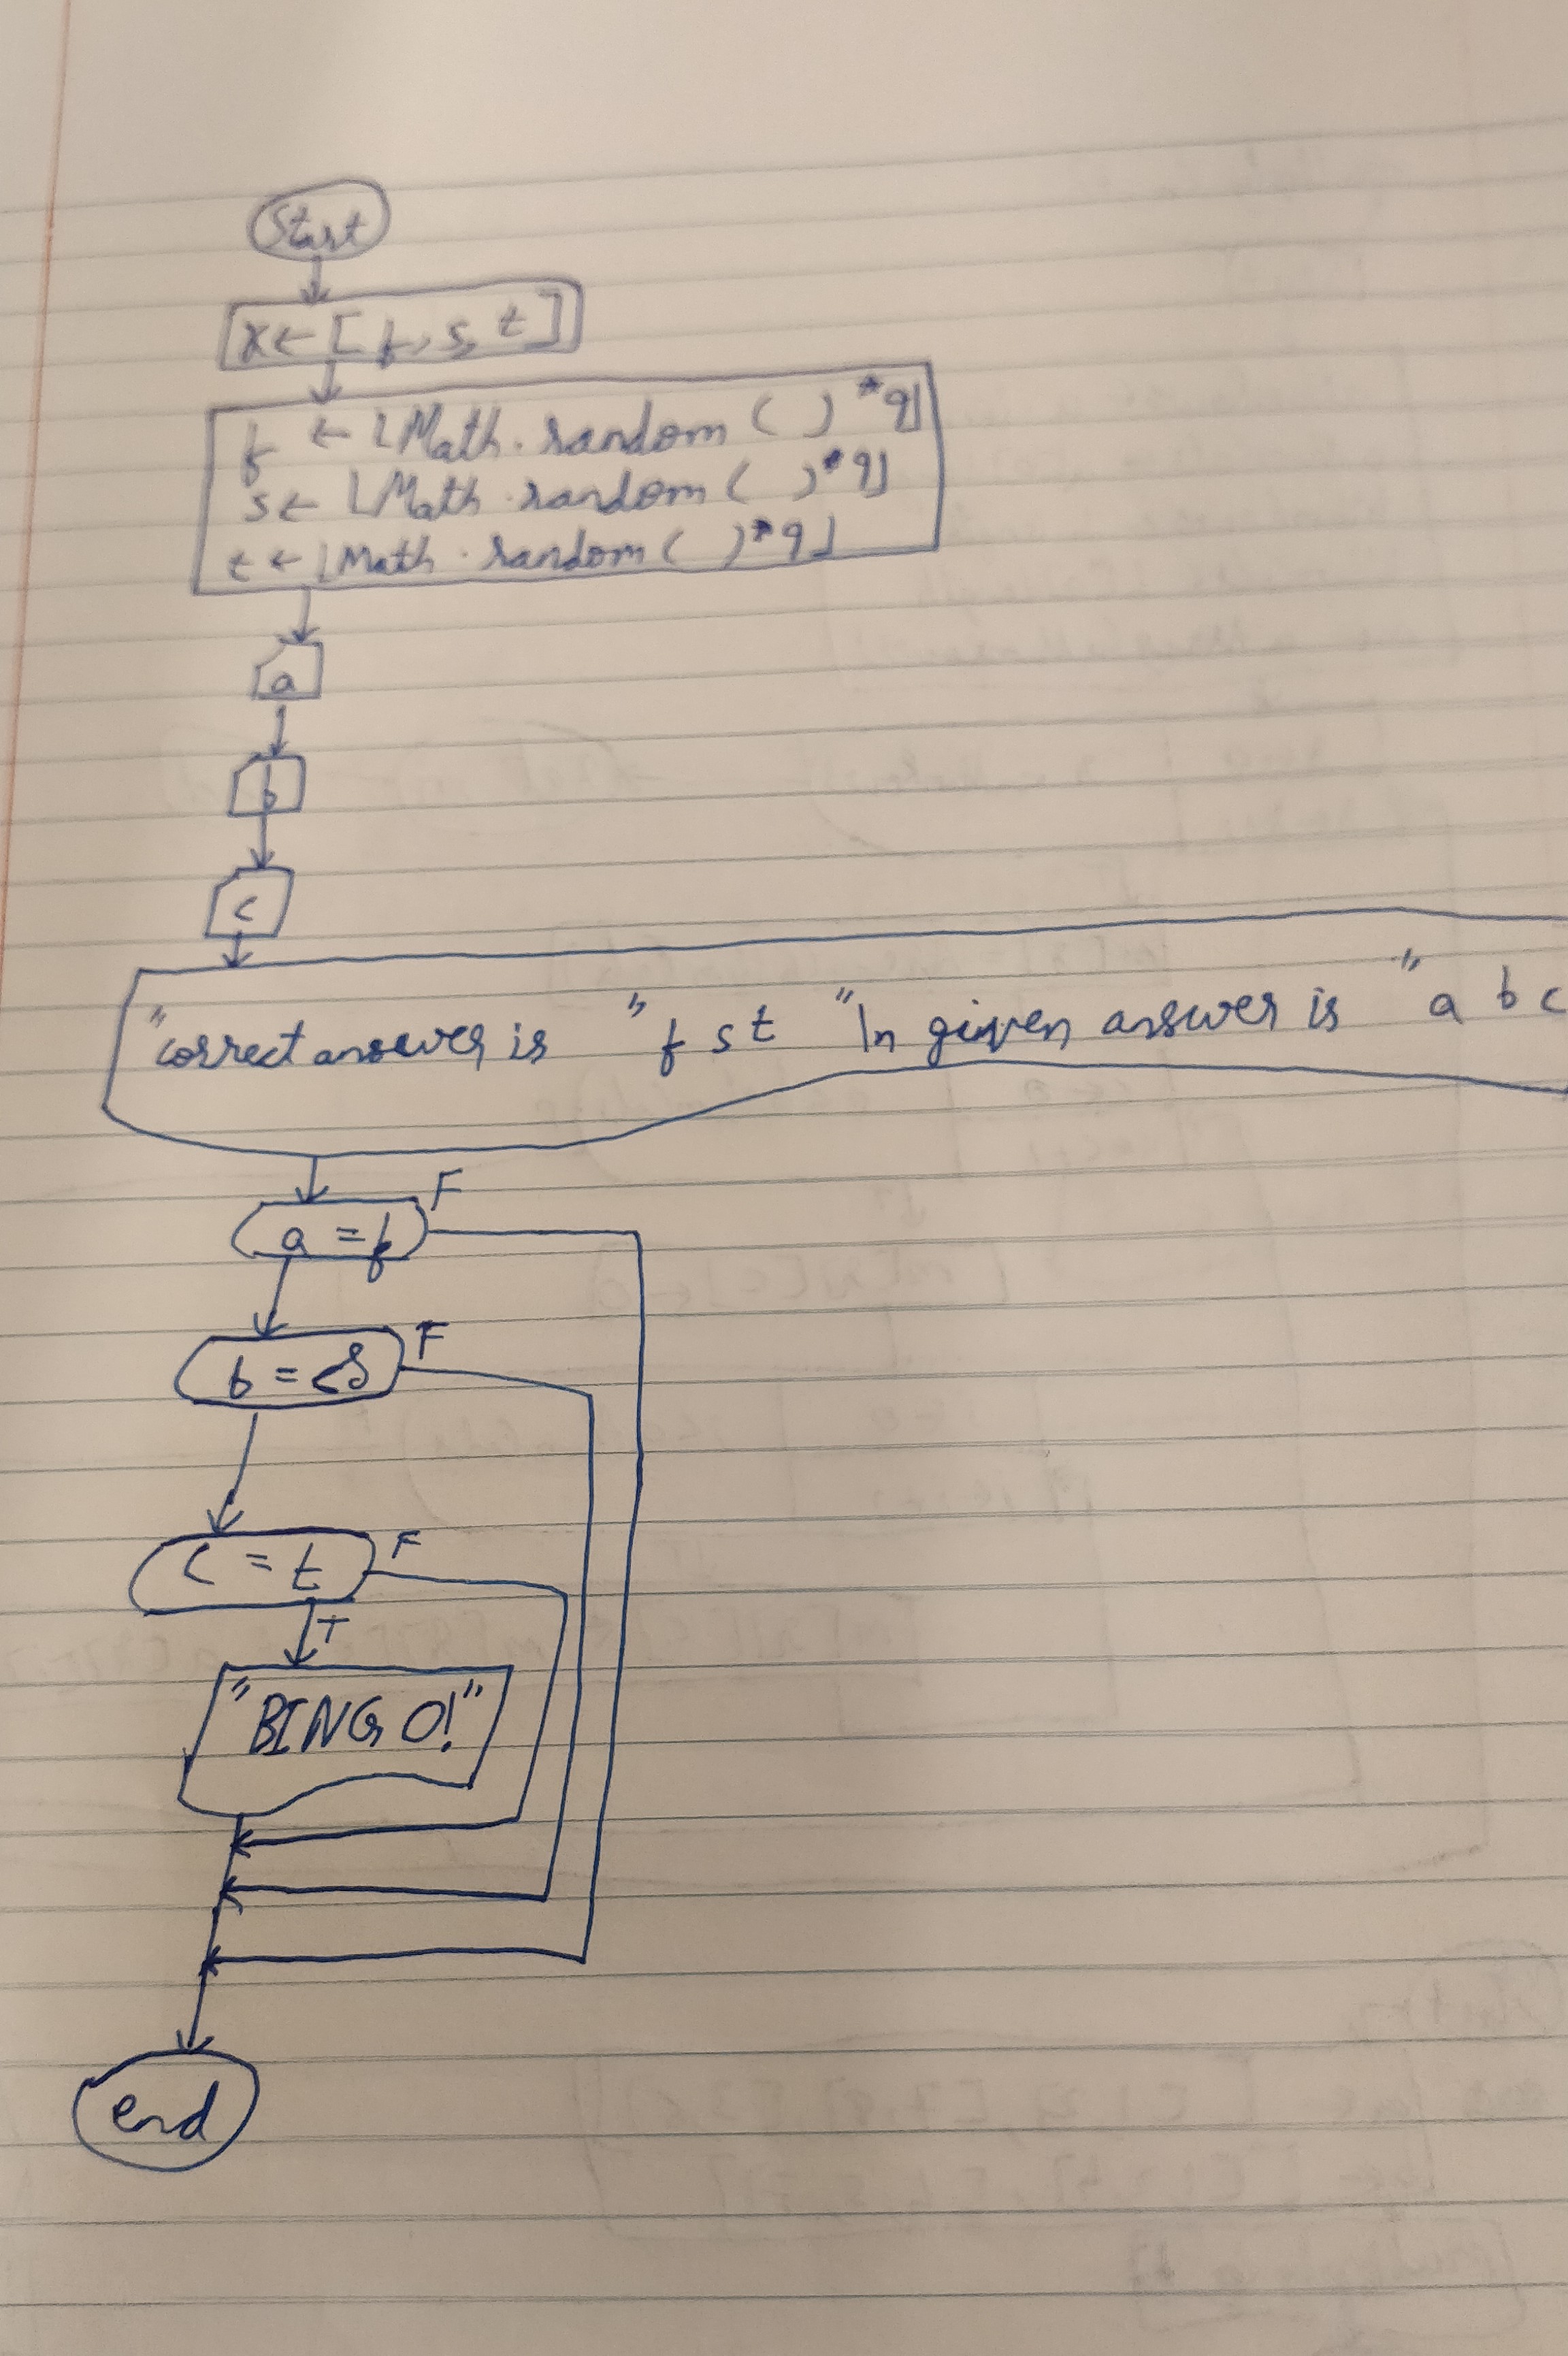 Start
x ← [f, s, t]
f ← ⌊Math.random( )*9⌋
s ← ⌊Math.random( )*9⌋
t ← ⌊Math.random( )*9⌋
a
b
c
"correct answer is " f s t "\n given answer is " a b c
a = f F
b = s F
c = t F
T
"BINGO!"
end